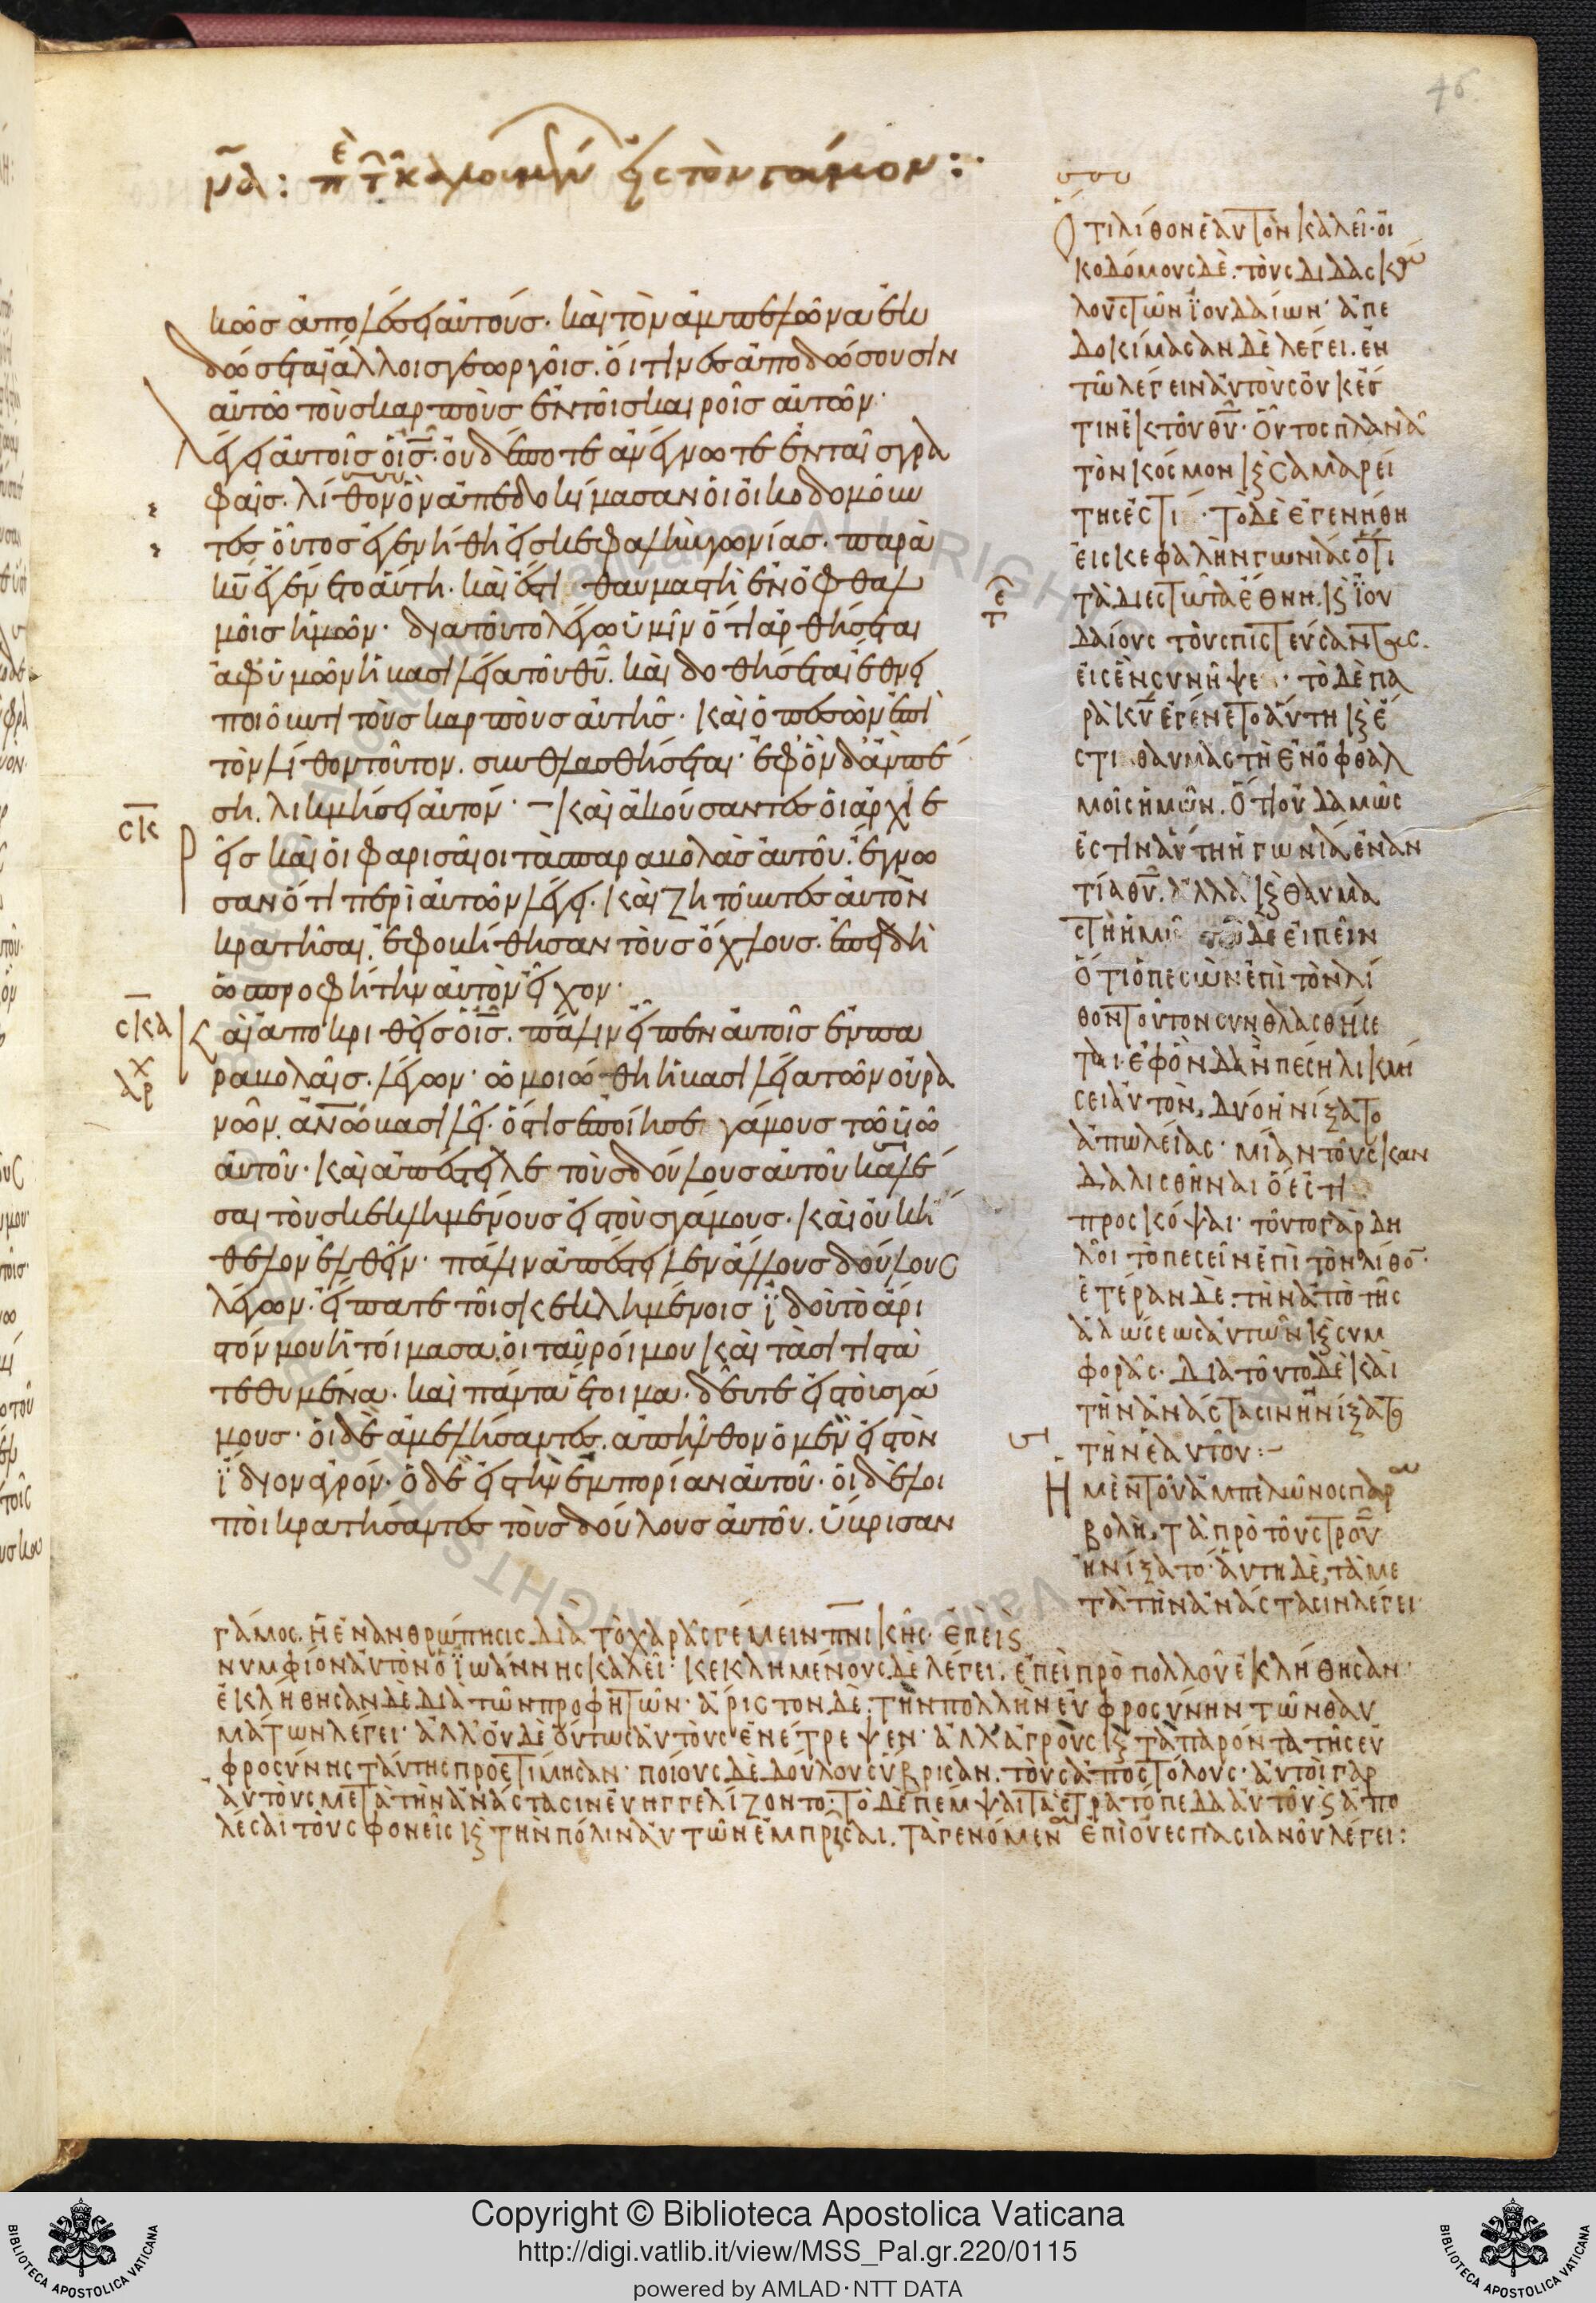 46
μα: περὶ τῶν καλουμένων εἰς τὸν γάμον:
κῶς ἀπολέσει αὐτούς· καὶ τὸν ἀμπελῶνα ἐκ
δώσεται ἄλλοις γεωργοῖς. οἵτινες ἀποδώσουσιν
αὐτῶ τοὺς καρποὺς ἐν τοῖς καιροῖς αὐτῶν·
λέγει αὐτοῖς ὁ ις. οὐδέποτε ἀνέγνωτε ἐν ταῖς γρα
φαῖς. λίθον ὃν ἀπεδοκίμασαν οἱ οἰκοδομοῦν
τες οὗτος ἐγενήθη εἰς κεφαλὴν γωνίας. παρὰ
κυ ἐγένετο αὕτη. καὶ ἔστι θαυμαστὴ ἐν ὀφθαλ
μοῖς ἡμῶν· διατοῦτο λέγω ὑμῖν ὅτι ἀρθήσεται
ἀφ' ὑμῶν ἡ βασιλεία τοῦ θυ. καὶ δοθήσεται ἔθνει
ποιοῦντι τοὺς καρποὺς αὐτῆς· καὶ ὁ πεσὼν ἐπὶ
τὸν λίθον τοῦτον. συνθλασθήσεται· ἐφ' ὃν δ' ἂν πέ
ση. λικμήσει αὐτόν· καὶ ἀκούσαντες οἱ ἀρχιε
σκ
ρεῖς καὶ οἱ φαρισαῖοι τὰς παραβολὰς αὐτοῦ. ἔγνω
σαν ὅτι περὶ αὐτῶν λέγει. καὶ ζητοῦντες αὐτὸν
κρατῆσαι. ἐφοβήθησαν τοὺς ὄχλους. ἐπειδὴ
ὡς προφήτην αὐτὸν εἶχον·
σκα
καὶ ἀποκριθεὶς ὁ ις. πάλιν εἶπεν αὐτοῖς ἐν πα
ραβολαῖς. λέγων· ὡμοιώθη ἡ βασιλεία τῶν οὐρα
νῶν ανω βασιλεῖ. ὅστις ἐποίησε γάμους τῶ υἱῶ
αὐτοῦ· καὶ ἀπέστειλε τοὺς δούλους αὐτοῦ καλέ
σαι τοὺς κεκλημένους εἰς τοὺς γάμους. καὶ οὐκ ἤ
θελον ἐλθεῖν· πάλιν ἀπέστειλεν ἄλλους δούλους
λέγων. εἴπατε τοῖς κεκλημένοις ἰδοὺ τὸ ἄρι
στόν μου ἡτοίμασα. οἱ ταῦροί μου καὶ τὰ σιτιστὰ
τεθυμένα. καὶ πάντα ἕτοιμα. δεῦτε εἰς τοὺς γά
μους· οἱ δὲ ἀμελήσαντες. ἀπῆλθον ὁ μὲν εἰς τὸν
ἴδιον ἀγρόν· ὁ δὲ εἰς τὴν ἐμπορίαν αὐτοῦ· οἱ δὲ λοι
ποὶ κρατήσαντες τοὺς δούλους αὐτοῦ. ὕβρισαν
Ὅτι λίθον ἑαυτὸν καλεῖ· οἰ
κοδόμους δὲ. τοὺς διδασκά
λους τῶν ἰουδαίων· ἀπε
δοκίμασαν δὲ λέγει. ἐν
τῶ λέγειν αὐτοὺς οὐκ ἔσ
τιν ἐκ τοῦ θυ· οὗτος πλανᾶ
τὸν κόσμον καὶ σαμαρεί
της ἐστί· τὸ δὲ ἐγενήθη
εἰς κεφαλὴν γωνίας ὅτι
τὰ διεστῶτα ἔθνη. καὶ ἰου
δαίους τοὺς πιστεύσαντας.
εἰς ἓν συνῆψε· τὸ δὲ πα
ρὰ κυ ἐγένετο αὕτη καὶ ἔ
στι θαυμαστὴ ἐν ὀφθαλ
μοῖς ἡμῶν. ὅτι οὐδαμῶς
ἐστὶν αὕτη ἡ γωνία, ἐναν
τία θυ. ἀλλὰ καὶ θαυμα
στὴ ἡμῖ δὲ εἰπεῖν
ὅτι ὁ πεσὼν ἐπὶ τὸν λί
θον τοῦτον συνθλασθήσε
ται· ἐφ' ὃν δ' ἂν πέση λικμή
σει αὐτὸν, δύο ἠνίξατο
ἀπωλείας· μίαν τοῦ σκαν
δαλισθῆναι ὅ ἐστι
προσκόψαι· τοῦτο γὰρ δη
λοῖ τὸ πεσεῖν ἐπὶ τὸν λίθο·
ἑτέραν δὲ. τὴν ἀπὸ τῆς
ἁλώσεως αὐτῶν καὶ συμ
φορᾶς· διὰ τοῦτο δὲ καὶ
τὴν ἀνάστασιν ἠνίξατο
τὴν ἑαυτοῦ:
Ἡ μὲν τοῦ ἀμπελῶνος παρα
βολὴ, τὰ πρὸ τοῦ στρου
ἠνίξατο· αὕτη δὲ, τὰ με
τὰ τὴν ἀνάστασιν λέγει·
γάμος. ἡ ἐνανθρώπησις διὰ τὸ χαρᾶς γέμειν πνικῆς· ἐπεὶ καὶ
νυμφίον αὐτὸν ὁ ἰωάννης καλεῖ· κεκλημένους δὲ λέγει. ἐπεὶ πρὸ πολλοῦ ἐκλήθησαν·
ἐκλήθησαν δὲ διὰ τῶν προφητῶν· ἄριστον δὲ. τὴν πολλὴν εὐφροσύνην τῶν θαυ
μάτων λέγει· ἀλλ' οὐδὲ οὕτως αὐτοὺς ἐνέτρεψεν· ἀλλ' ἀγροὺς καὶ τὰ παρόντα τῆς εὐ
φροσύνης ταύτης προετίμησαν· ποίους δὲ δούλους ὕβρισαν. τοὺς ἀποστόλους· αὐτοὶ γὰρ
αὐτοὺς μετὰ τὴν ἀνάστασιν εὐηγγελίζοντο· τὸ δὲ πέμψαι τὰ στρατόπεδα αὐτοῦ καὶ ἀπο
λέσαι τοὺς φονεῖς καὶ τὴν πόλιν αὐτῶν ἐμπρῆσαι. τὰ γενόμενα ἐπὶ οὐεσπασιανοῦ λέγει:
Copyright © Biblioteca Apostolica Vaticana
http://digi.vatlib.it/view/MSS_Pal.gr.220/0115
powered by AMLAD·NTT DATA
BIBLIOTECA APOSTOLICA VATICANA
BIBLIOTECA APOSTOLICA VATICANA